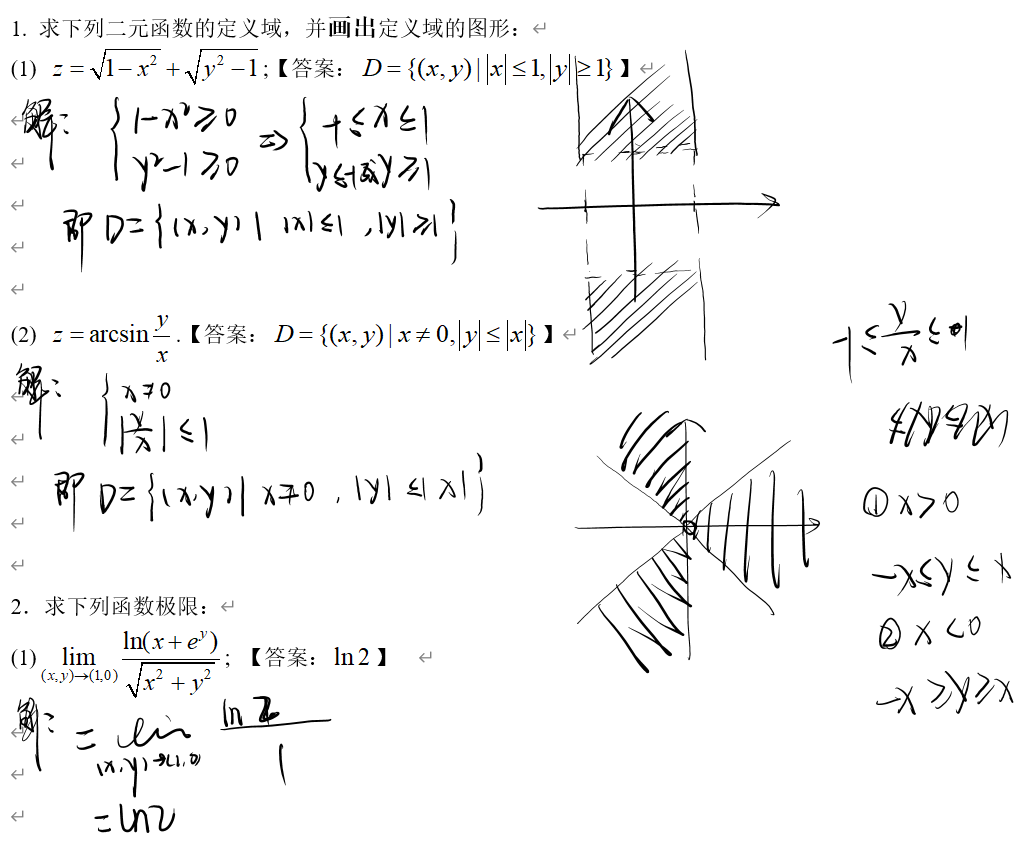 1. 求下列二元函数的定义域，并画出定义域的图形：
(1) z = √(1−x²) + √(y²−1) ;【答案：D = {(x, y) | |x| ≤ 1, |y| ≥ 1}】
解： { 1−x² ≥ 0 ⇒ { −1 ≤ x ≤ 1
y²−1 ≥ 0 y ≤ −1 或 y ≥ 1
即 D = {(x, y) | |x| ≤ 1 , |y| ≥ 1}
(2) z = arcsin y/x .【答案：D = {(x, y) | x ≠ 0, |y| ≤ |x|}】
解： { x ≠ 0
|y/x| ≤ 1
即 D = {(x, y) | x ≠ 0 , |y| ≤ |x|}
−1 ≤ y/x ≤ 1
① x > 0
−x ≤ y ≤ x
② x < 0
−x ≥ y ≥ x
2．求下列函数极限：
(1) lim (x,y)→(1,0) ln(x + e^y) / √(x² + y²) ; 【答案：ln 2】
解： = lim (x,y)→(1,0) ln 2 / 1
= ln 2